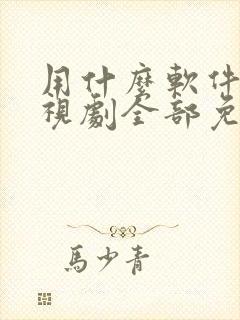 用什麼軟件
視劇全部免
馬少青